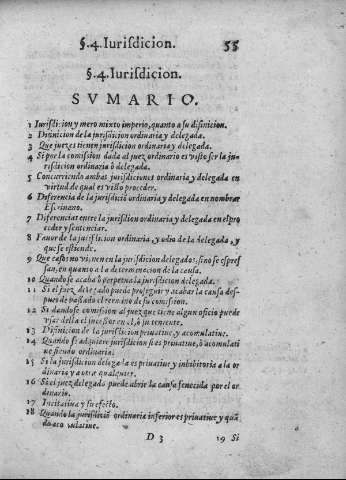 §.4. Iurisdicion. 55
§.4. Iurisdicion.
SVMARIO.
1 Iurisdicion y mero mixto imperio, quanto a su difinicion.
2 Difinicion de la jurisdicion ordinaria y delegada.
3 Que juezes tienen jurisdicion ordinaria y delegada.
4 Si por la comission dada al juez ordinario es visto ser la ju-
risdicion ordinaria ò delegada.
5 Concurriendo ambas jurisdiciones ordinaria y delegada en
virtud de qual es visto proceder.
6 Diferencia de la jurisdiciõ ordinaria y delegada en nombrar
Escriuano.
7 Diferenciar entre la jurisdicion ordinaria y delegada en el pro
ceder y sentenciar.
8 Fauor de la jurisdicion ordinaria, y odio de la delegada, y
que se estiende.
9 Que casos no vienen en la jurisdicion delegada: sino se espres
san, en quanto a la determinacion de la causa.
10 Quando se acaba ò perpetua la jurisdicion delegada.
11 Si el juez delegado puede proseguir y acabar la causa des-
pues de passado el termino de su comission.
12 Si dandose comission al juez que tiene algun oficio puede
vsar della el sucessor en el, ò su teniente.
13 Difinicion de la jurisdicion priuatiue, y acomulatiue.
14 Quando se adquiere jurisdicion si es priuatiue, ò acomulati
ue siendo ordinaria.
15 Si la jurisdicion delegada es priuatiue y inhibitoria a la or
dinaria y a otra qualquier.
16 Si el juez delegado puede abrir la causa fenecida por el or
dinario.
17 Incitatiua y su efecto.
18 Quando la jurisdiciõ ordinaria inferior es priuatiue y quã
do acomulatiue.
D 3 19 Si